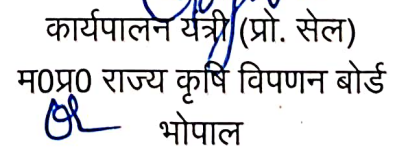 कार्यपालन यंत्री (प्रो. सेल)
म0प्र0 राज्य कृषि विपणन बोर्ड
भोपाल